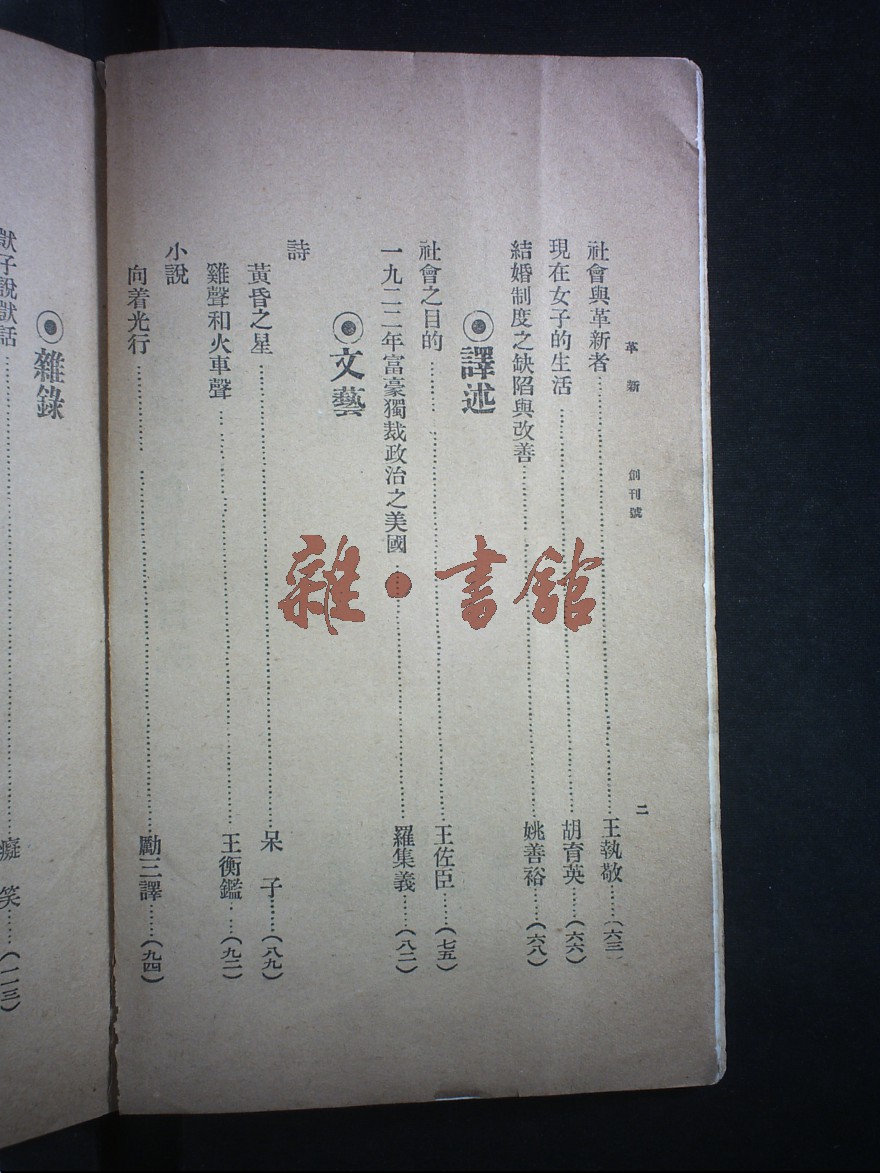 革新 創刊號 二
社會與革新者……王執敬……(六三)
現在女子的生活……胡育英……(六六)
結婚制度之缺陷與改善……姚善裕……(六八)
譯述
社會之目的……王佐臣……(七五)
一九二二年富豪獨裁政治之美國……羅集義……(八二)
文藝
詩
黃昏之星……呆子……(八九)
雞聲和火車聲……王衡鑑……(九二)
小說
向着光行……勵三譯……(九四)
雜錄
獃子說獃話……癡笑……(一一三)
雜·書館